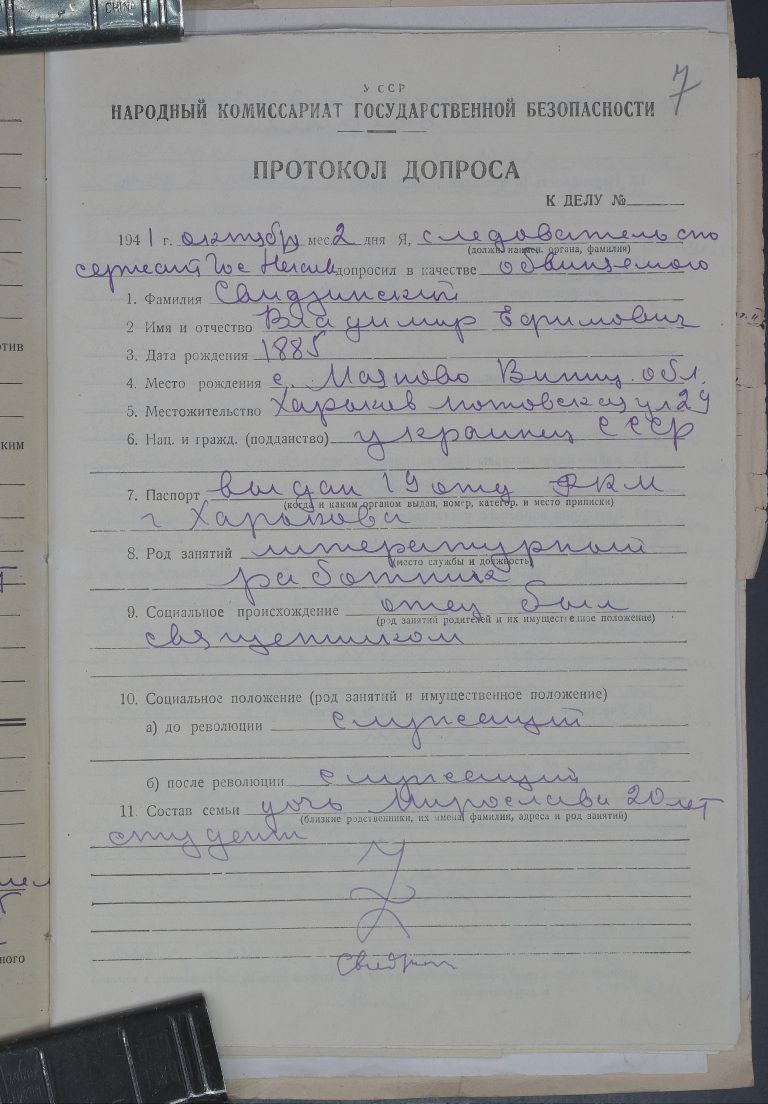 7
УССР
НАРОДНЫЙ КОМИССАРИАТ ГОСУДАРСТВЕННОЙ БЕЗОПАСНОСТИ
ПРОТОКОЛ ДОПРОСА
К ДЕЛУ №
1941 г. октября мес. 2 дня Я, следователь
(должн. наимен. органа, фамилия)
сержант Гос допросил в качестве обвиняемого
1. Фамилия Свидзинский
2 Имя и отчество Владимир Ефимович
3. Дата рождения 1885
4. Место рождения с. Маяново Винниц. обл.
5. Местожительство Харьков ул 29
6. Нац. и гражд. (подданство) украинец СССР
7. Паспорт выдан 19 отд РКМ
(когда и каким органом выдан, номер, категор. и место приписки)
г Харькова
8. Род занятий литературный
(место службы и должность)
работник
9. Социальное происхождение отец был
(род занятий родителей и их имущественное положение)
священником
10. Социальное положение (род занятий и имущественное положение)
а) до революции служащий
б) после революции служащий
11. Состав семьи дочь Мирослава 20 лет
(близкие родственники, их имена, фамилия, адреса и род занятий)
студент